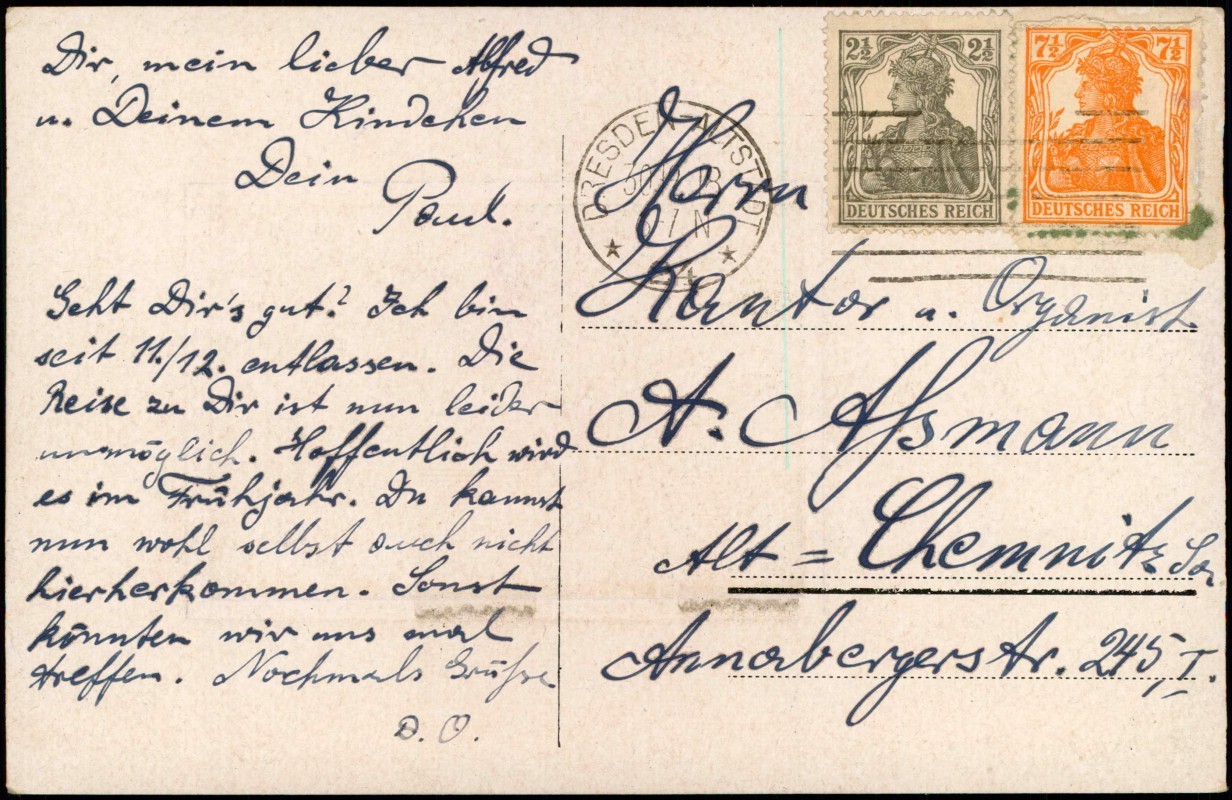 Dir, mein lieber Alfred
u. Deinem Kindchen
Dein
Paul.
Geht Dir's gut? Ich bin
seit 11./12. entlassen. Die
Reise zu Dir ist nun leider
unmöglich. Hoffentlich wird
es im Frühjahr. Du kannst
nun wohl selbst auch nicht
hierherkommen. Sonst
könnten wir uns mal
treffen. Nochmals Grüße
D. O.
2½ 2½
DEUTSCHES REICH
7½ 7½
DEUTSCHES REICH
DRESDEN-ALTSTADT
Herrn
Kantor u. Organist
A. Aßmann
Alt=Chemnitz Sa
Annabergerstr. 245, I.